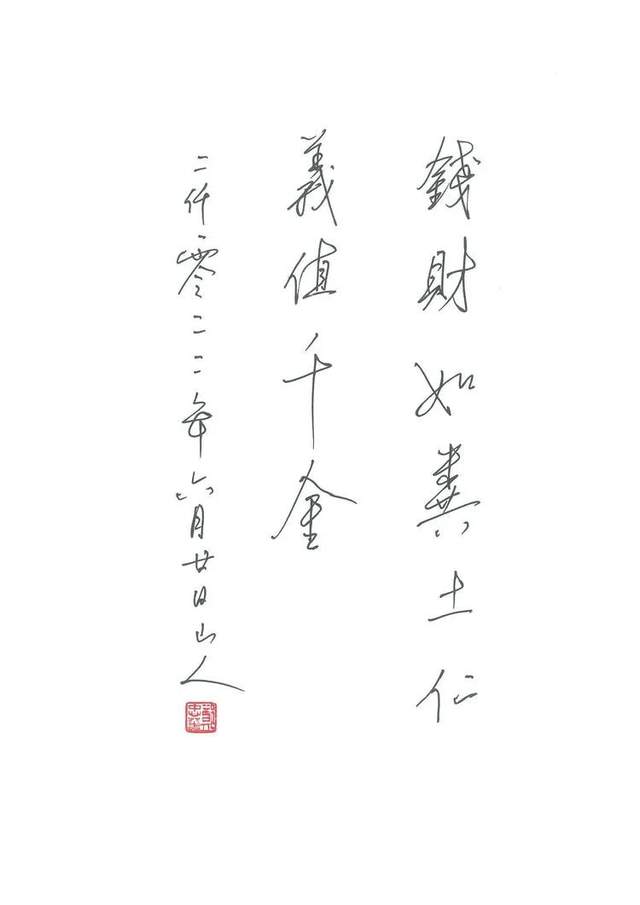 錢財如糞土仁
義值千金
二仟零二二年六月廿日山人